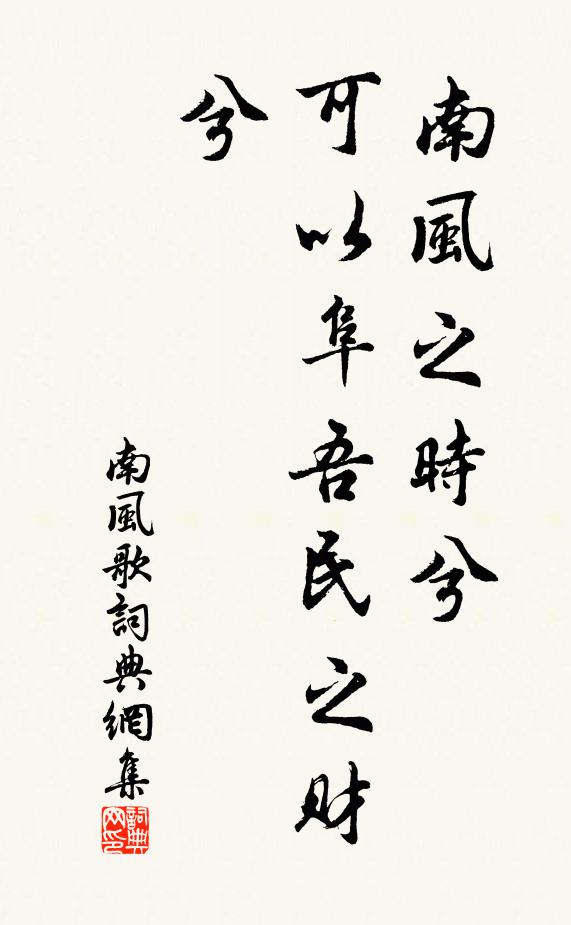 南風之時兮
可以阜吾民之財
兮
南風歌詞典網集
詞典网印